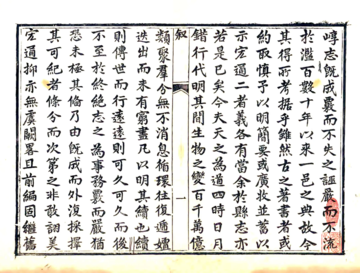 嶂志旣成襄而不失之誣嚴而不流
於濫百數十年以來一邑之典故今
其得所考据乎雖然古之著書者或
約取慎予以明簡要或廣牧並蓄以
示宏通二者義各有當余於縣志亦
若是已矣今夫天之為道四時日月
錯行代明其間生物之變百千萬億
叙
一
類聚羣分無不消息循環往復遞嬗
迭出而未有窮盡凡以明其續也續
則傳世而行遠遠則可久可久而後
不至於終絶志之為事務覈而嚴猶
恐未極其脩乃由旣成而外沒採擇
其可紀者條分而次第之非敢詡美
宏通抑亦無虞闕畧且前編固繼舊